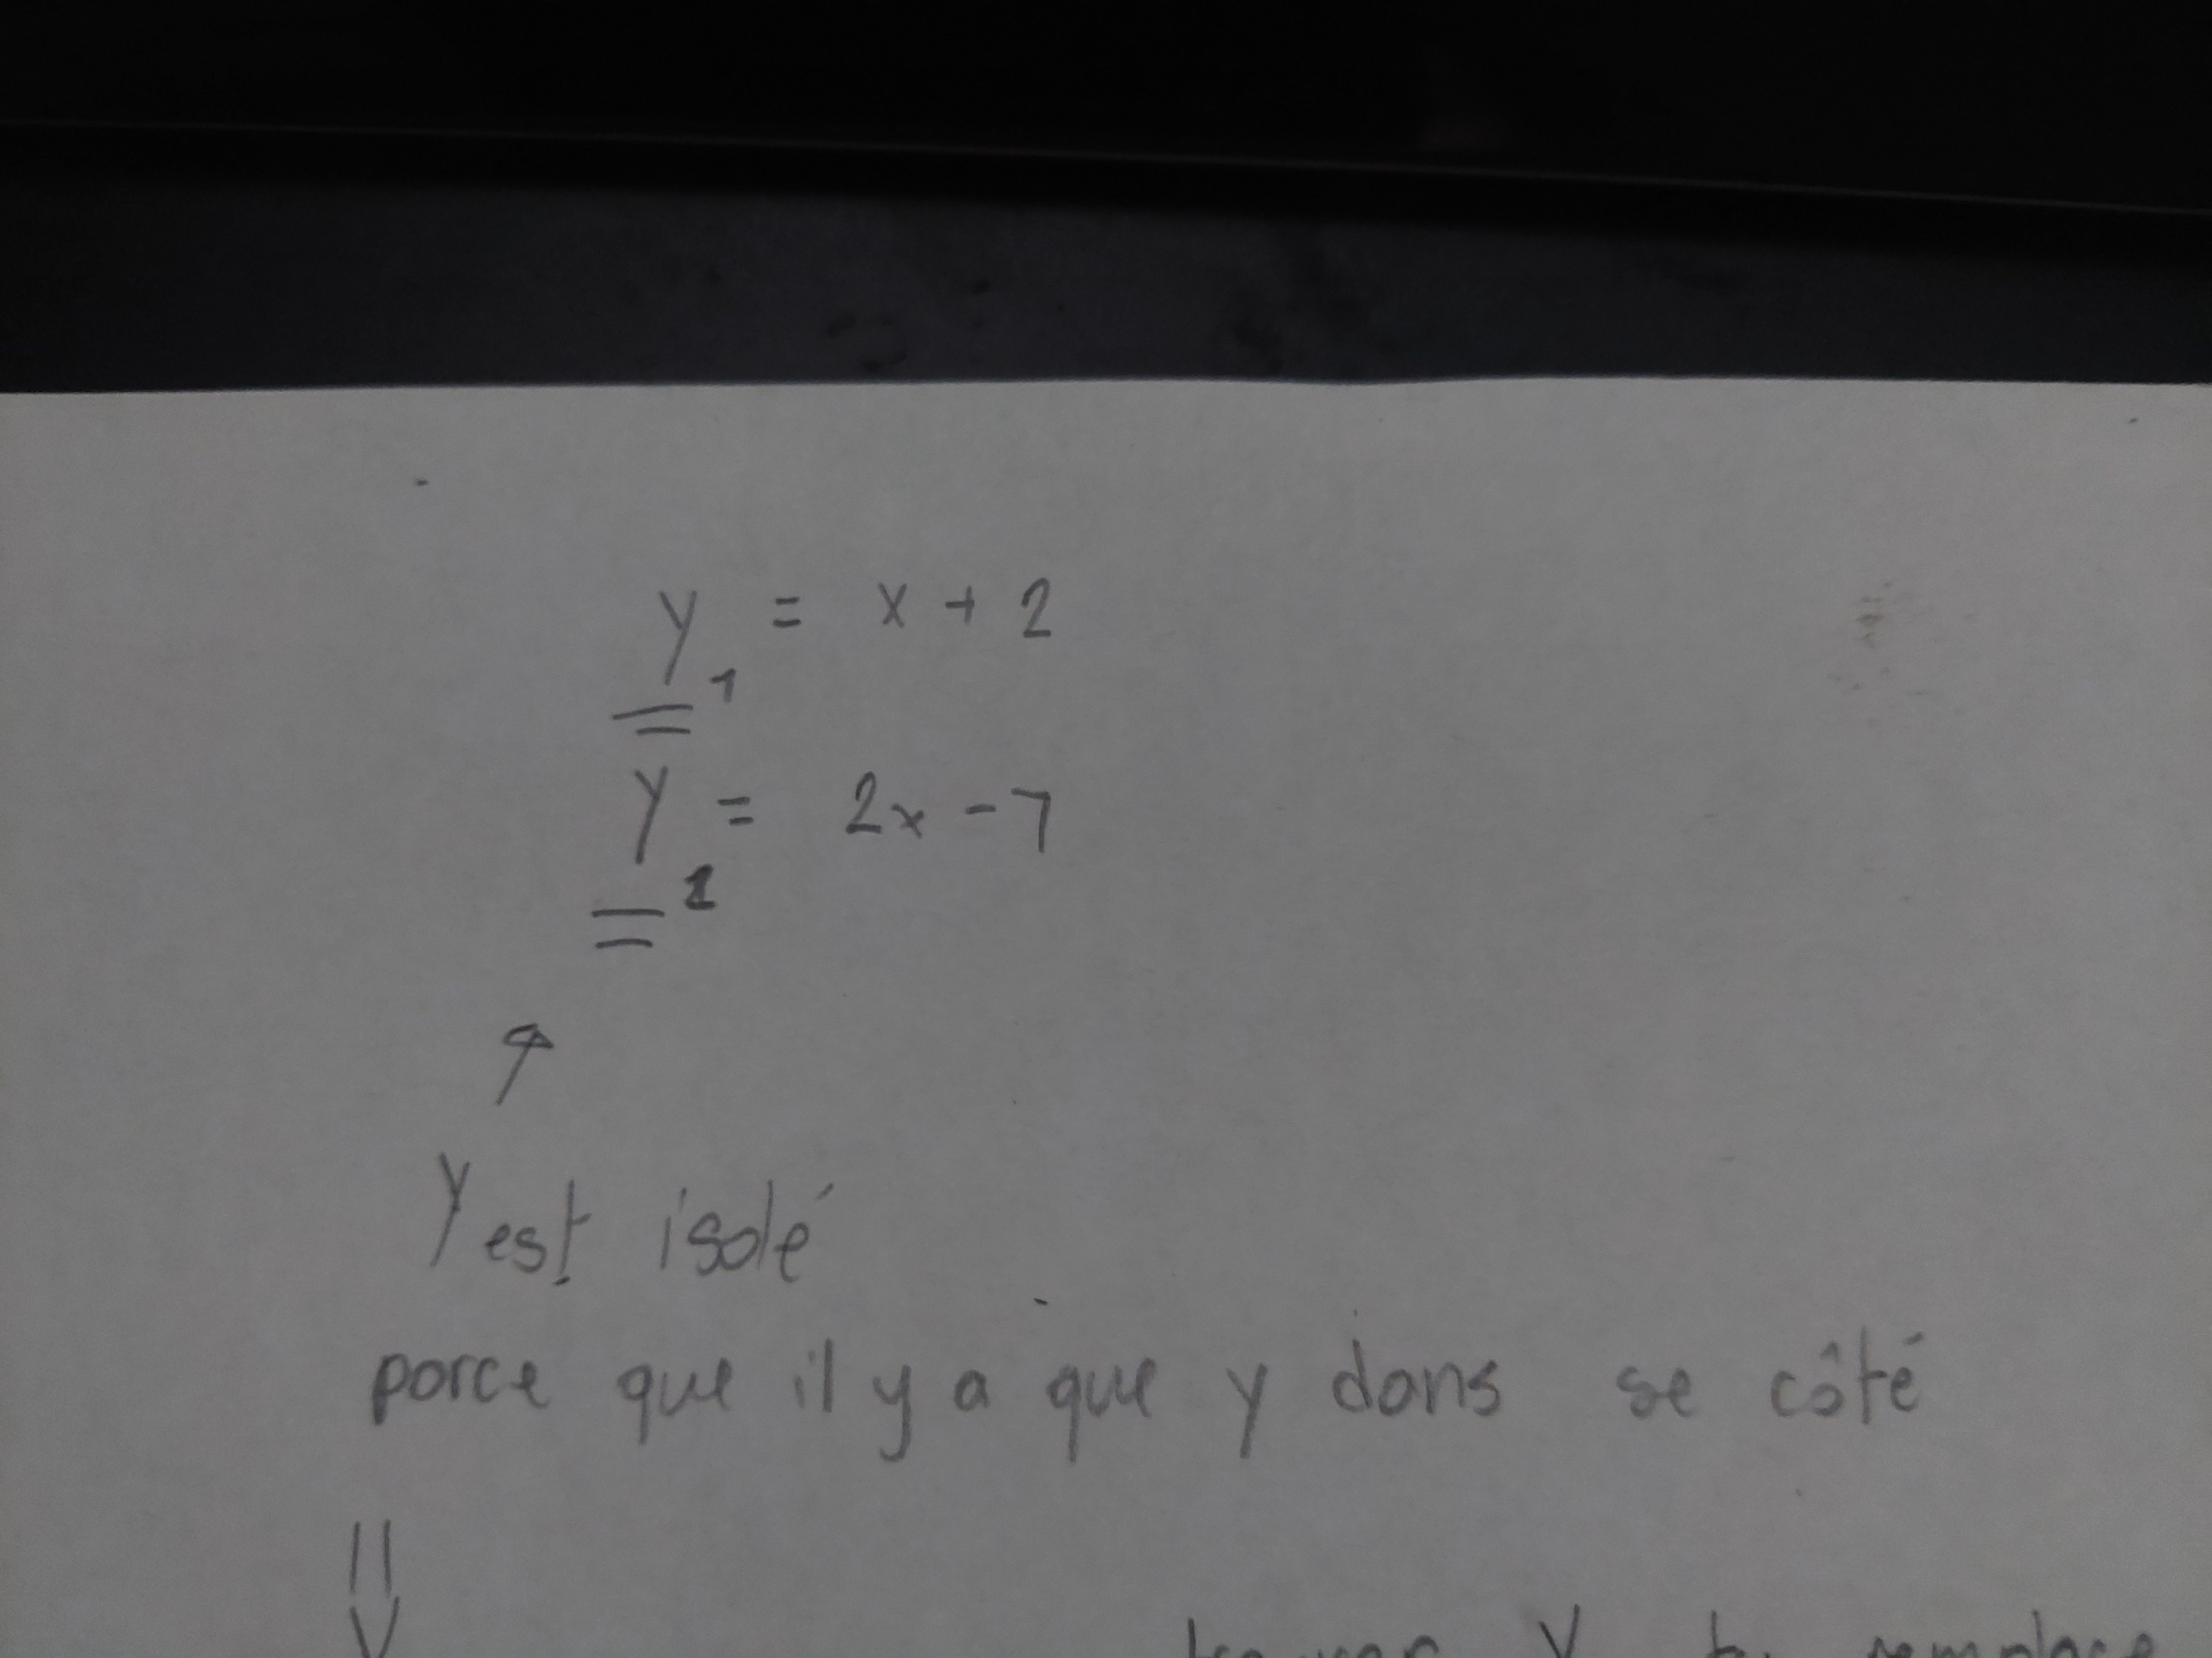 y₁ = x + 2
y₂ = 2x - 7
y est isolé
parce que il y a que y dans se côté
y